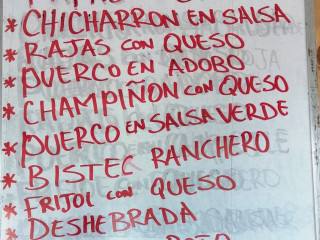 * CHICHARRON EN SALSA
* RAJAS con QUESO
* PUERCO EN ADOBO
* CHAMPIÑON con QUESO
* PUERCO EN SALSA VERDE
* BISTEC RANCHERO
* FRIJOL con QUESO
* DESHEBRADA